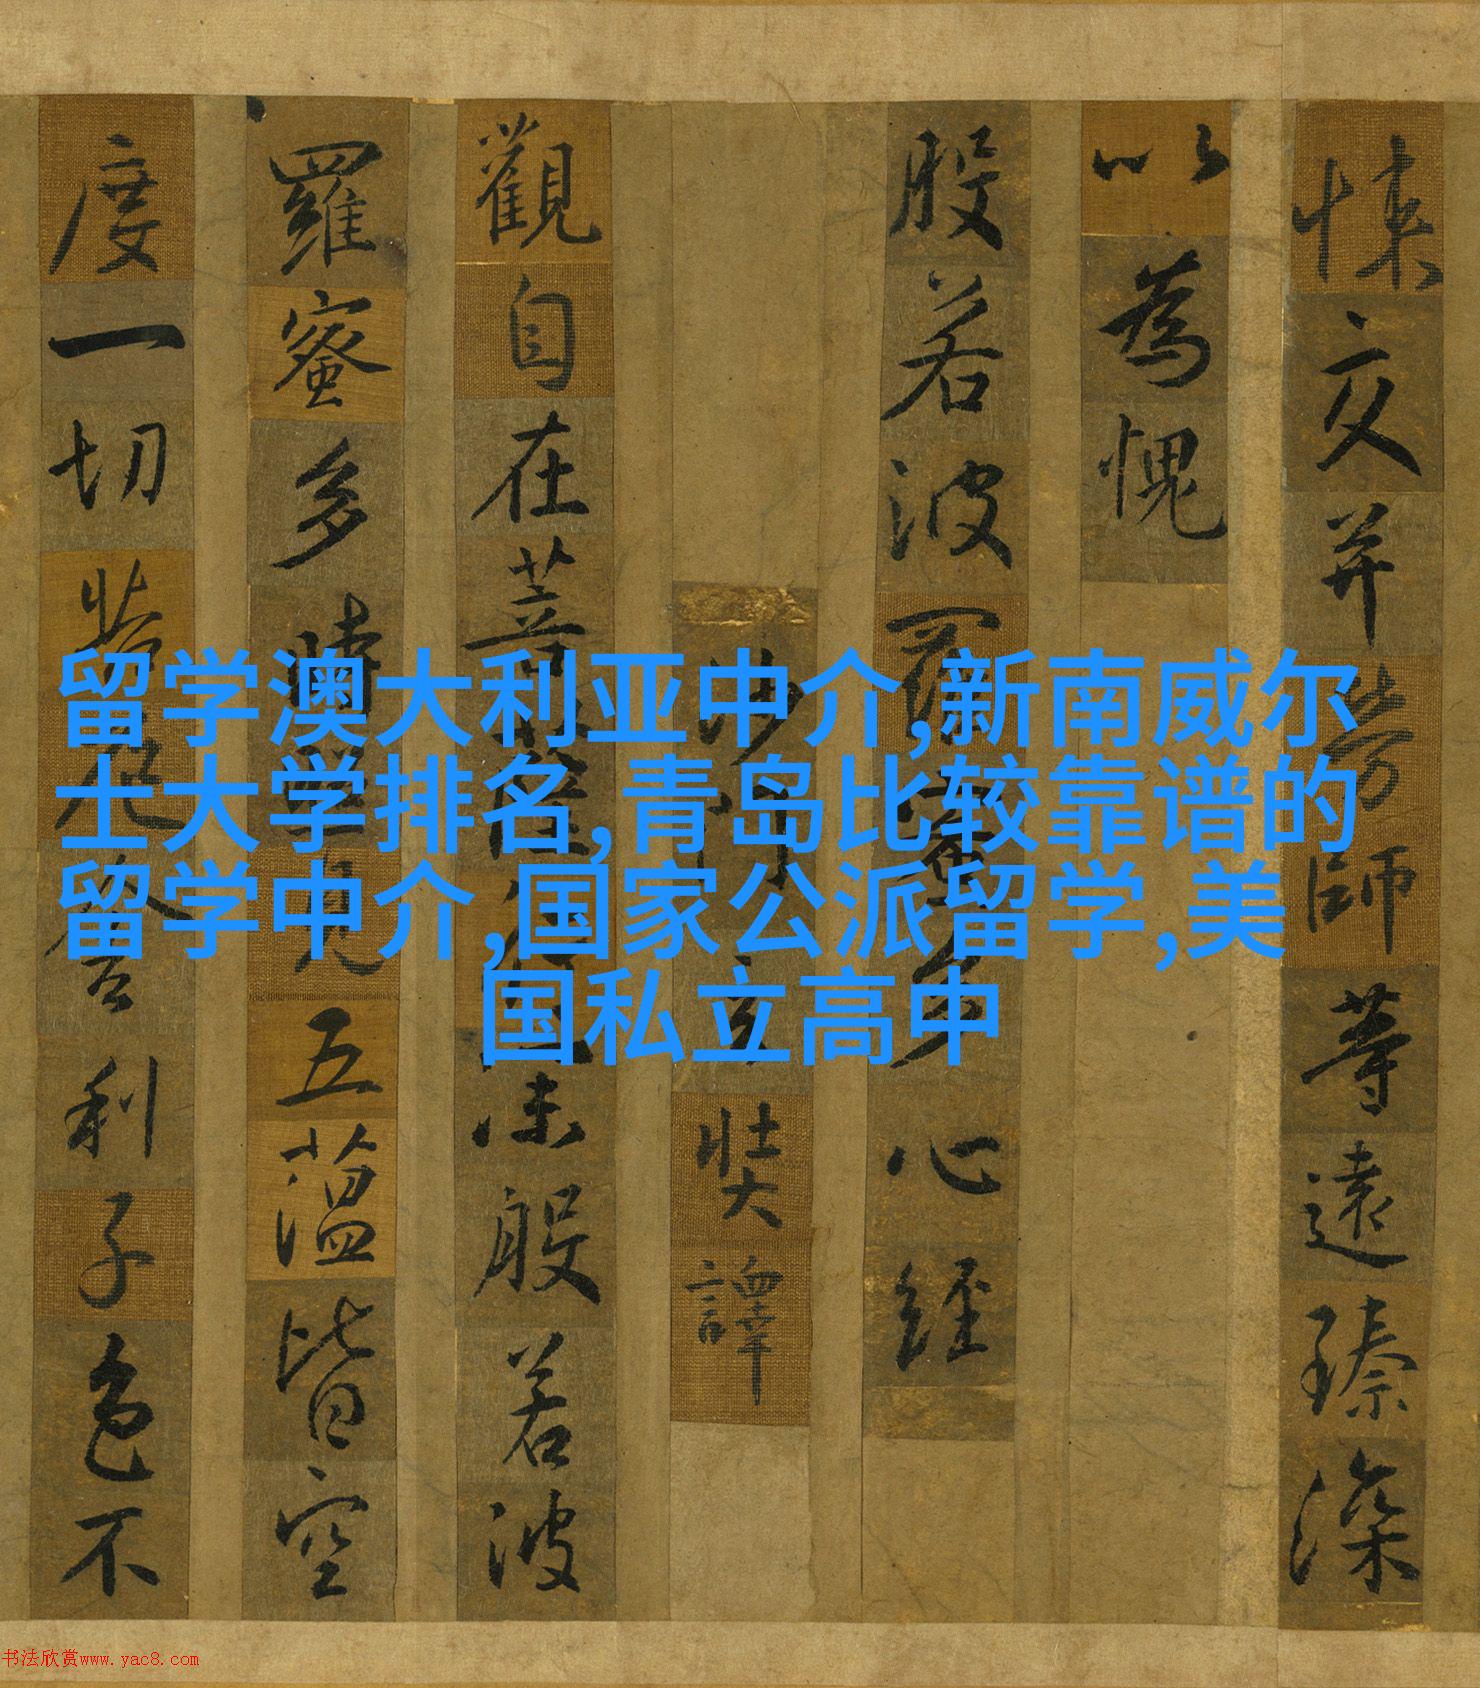 悚交并勞師等遠臻深
以為愧
般若波羅蜜多心經
沙門玄奘譯
觀自在菩薩行深般若波
羅蜜多時照見五蘊皆空
度一切苦厄舍利子色不
留学澳大利亚中介,新南威尔
士大学排名,青岛比较靠谱的
留学中介,国家公派留学,美
国私立高中
书法欣赏www.yac8.com